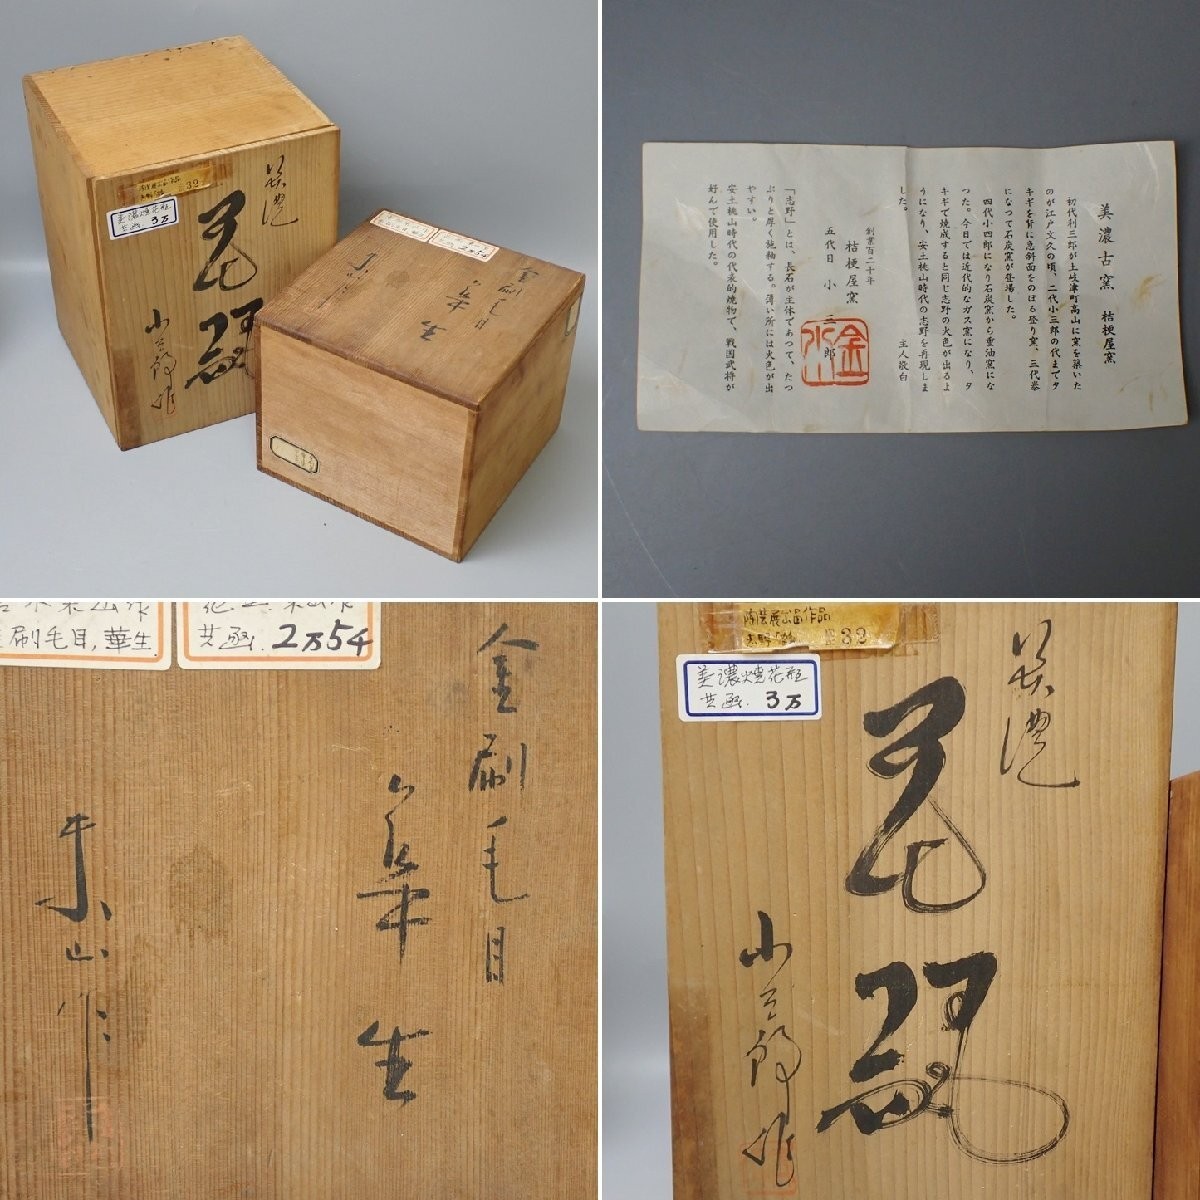 美濃
花瓶
小三郎作
美濃焼花瓶
共函 3万
E 32
金刷毛目
華生
2万5千
美濃古窯 桔梗屋窯
初代利三郎が土岐津町高山に窯を築いた
のが江戸文久の頃、二代小三郎の代までタ
キギを背に急斜面をのぼる登り窯、三代泰
になつて石炭窯が登場した。
四代小四郎になり石炭窯から重油窯にな
つた。今日では近代的なガス窯になり、タ
キギで焼成すると同じ志野の火色が出るよ
うになり、安土桃山時代の志野を再現しま
した。
主人敬白
創業百二十年
桔梗屋窯
五代目 小三郎
「志野」とは、長石が主体であつて、たつ
ぷりと厚く施釉する。薄い所には火色が出
やすい。
安土桃山時代の代表的焼物で、戦国武将が
好んで使用した。
刷毛目,華生
共函. 2万54
金刷毛目
華生
山作
陶芸展出品作品
E 32
美濃焼花瓶
共函. 3万
美濃
花瓶
小三郎作